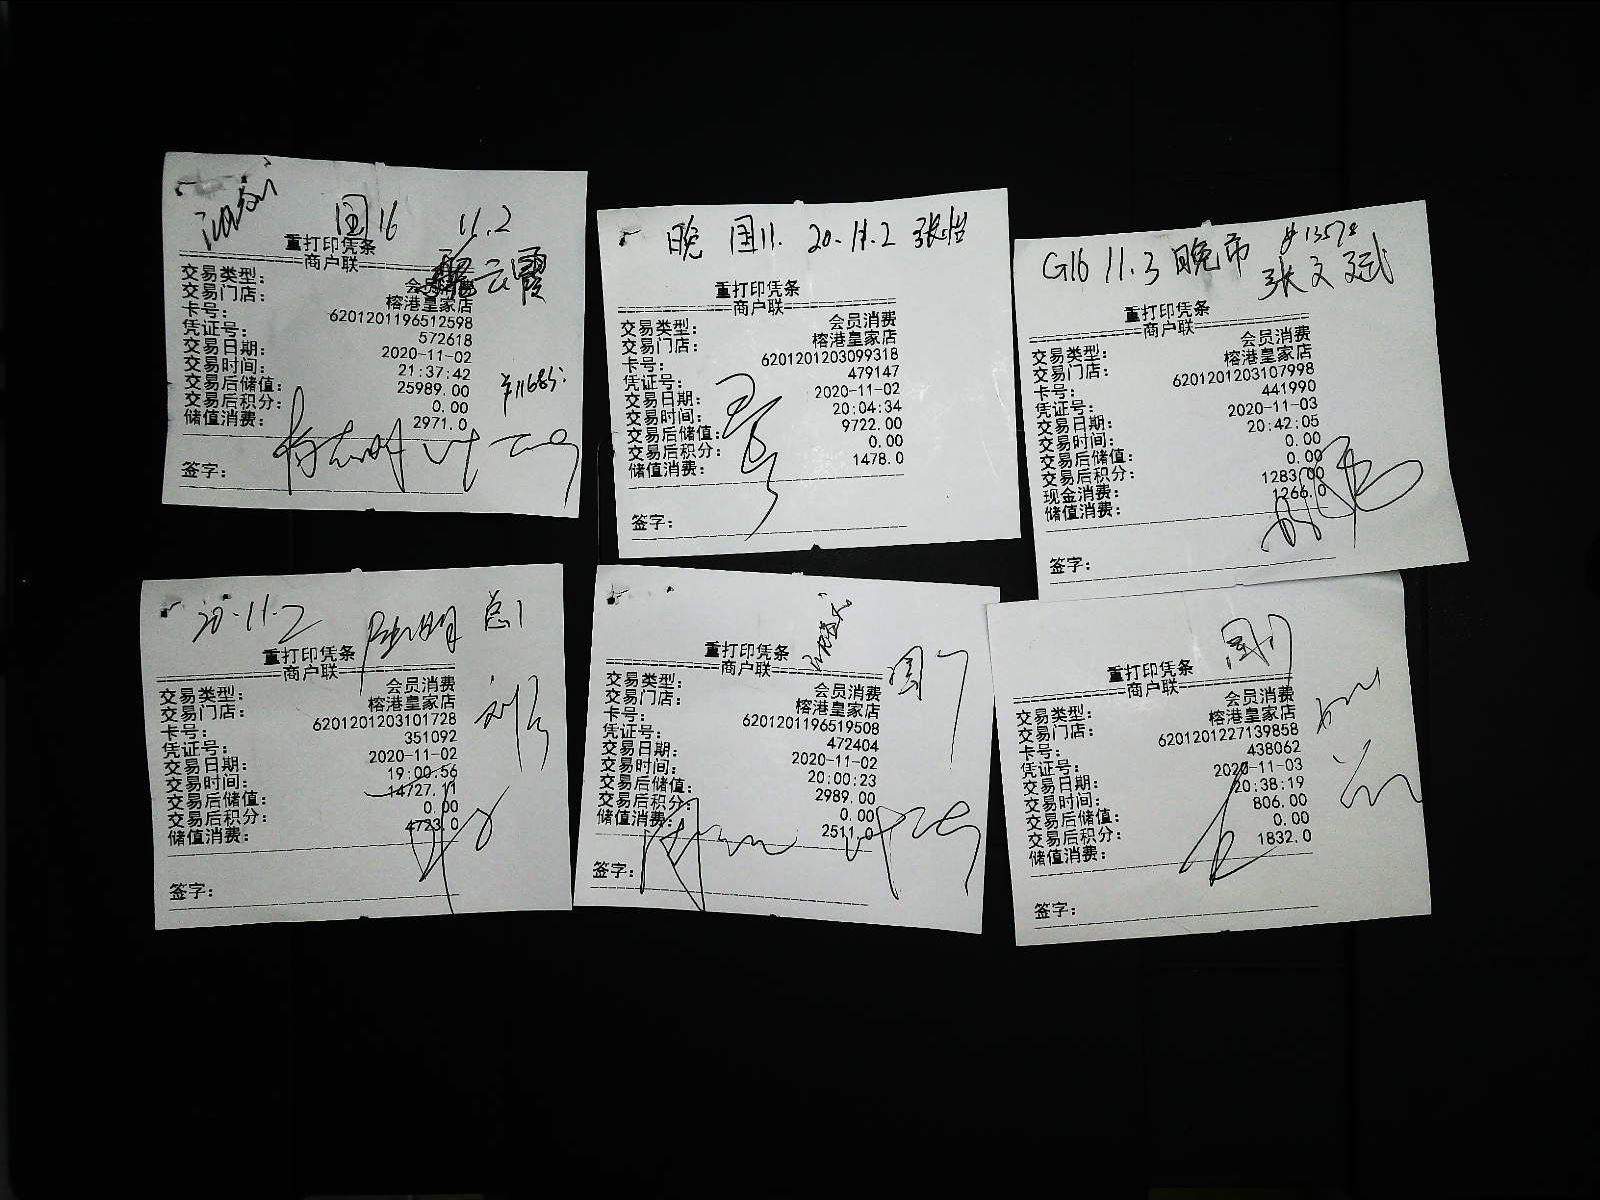 国16 11.2
重打印凭条
商户联
云霞
交易类型: 会员消费
交易门店: 榕港皇家店
卡号: 6201201196512598
凭证号: 572618
交易日期: 2020-11-02
交易时间: 21:37:42
交易后储值: 25989.00
交易后积分: 0.00
储值消费: 2971.0
签字:
晚 国11. 20.11.2 张怡
重打印凭条
商户联
交易类型: 会员消费
交易门店: 榕港皇家店
卡号: 6201201203099318
凭证号: 479147
交易日期: 2020-11-02
交易时间: 20:04:34
交易后储值: 9722.00
交易后积分: 0.00
储值消费: 1478.0
签字:
G16 11.3 晚市
张文
重打印凭条
商户联
交易类型: 会员消费
交易门店: 榕港皇家店
卡号: 6201201203107998
凭证号: 441990
交易日期: 2020-11-03
交易时间: 20:42:05
交易后储值: 0.00
交易后积分: 0.00
现金消费: 1283.00
储值消费: 1266.0
签字:
20.11.2 总1
重打印凭条
商户联
交易类型: 会员消费
交易门店: 榕港皇家店
卡号: 6201201203101728
凭证号: 351092
交易日期: 2020-11-02
交易时间: 19:00:56
交易后储值: 14727.11
交易后积分: 0.00
储值消费: 4723.0
签字:
国7
重打印凭条
商户联
交易类型: 会员消费
交易门店: 榕港皇家店
卡号: 6201201196519508
凭证号: 472404
交易日期: 2020-11-02
交易时间: 20:00:23
交易后储值: 2989.00
交易后积分: 0.00
储值消费: 2511.0
签字:
重打印凭条
商户联
交易类型: 会员消费
交易门店: 榕港皇家店
卡号: 6201201227139858
凭证号: 438062
交易日期: 2020-11-03
交易时间: 20:38:19
交易后储值: 806.00
交易后积分: 0.00
储值消费: 1832.0
签字: